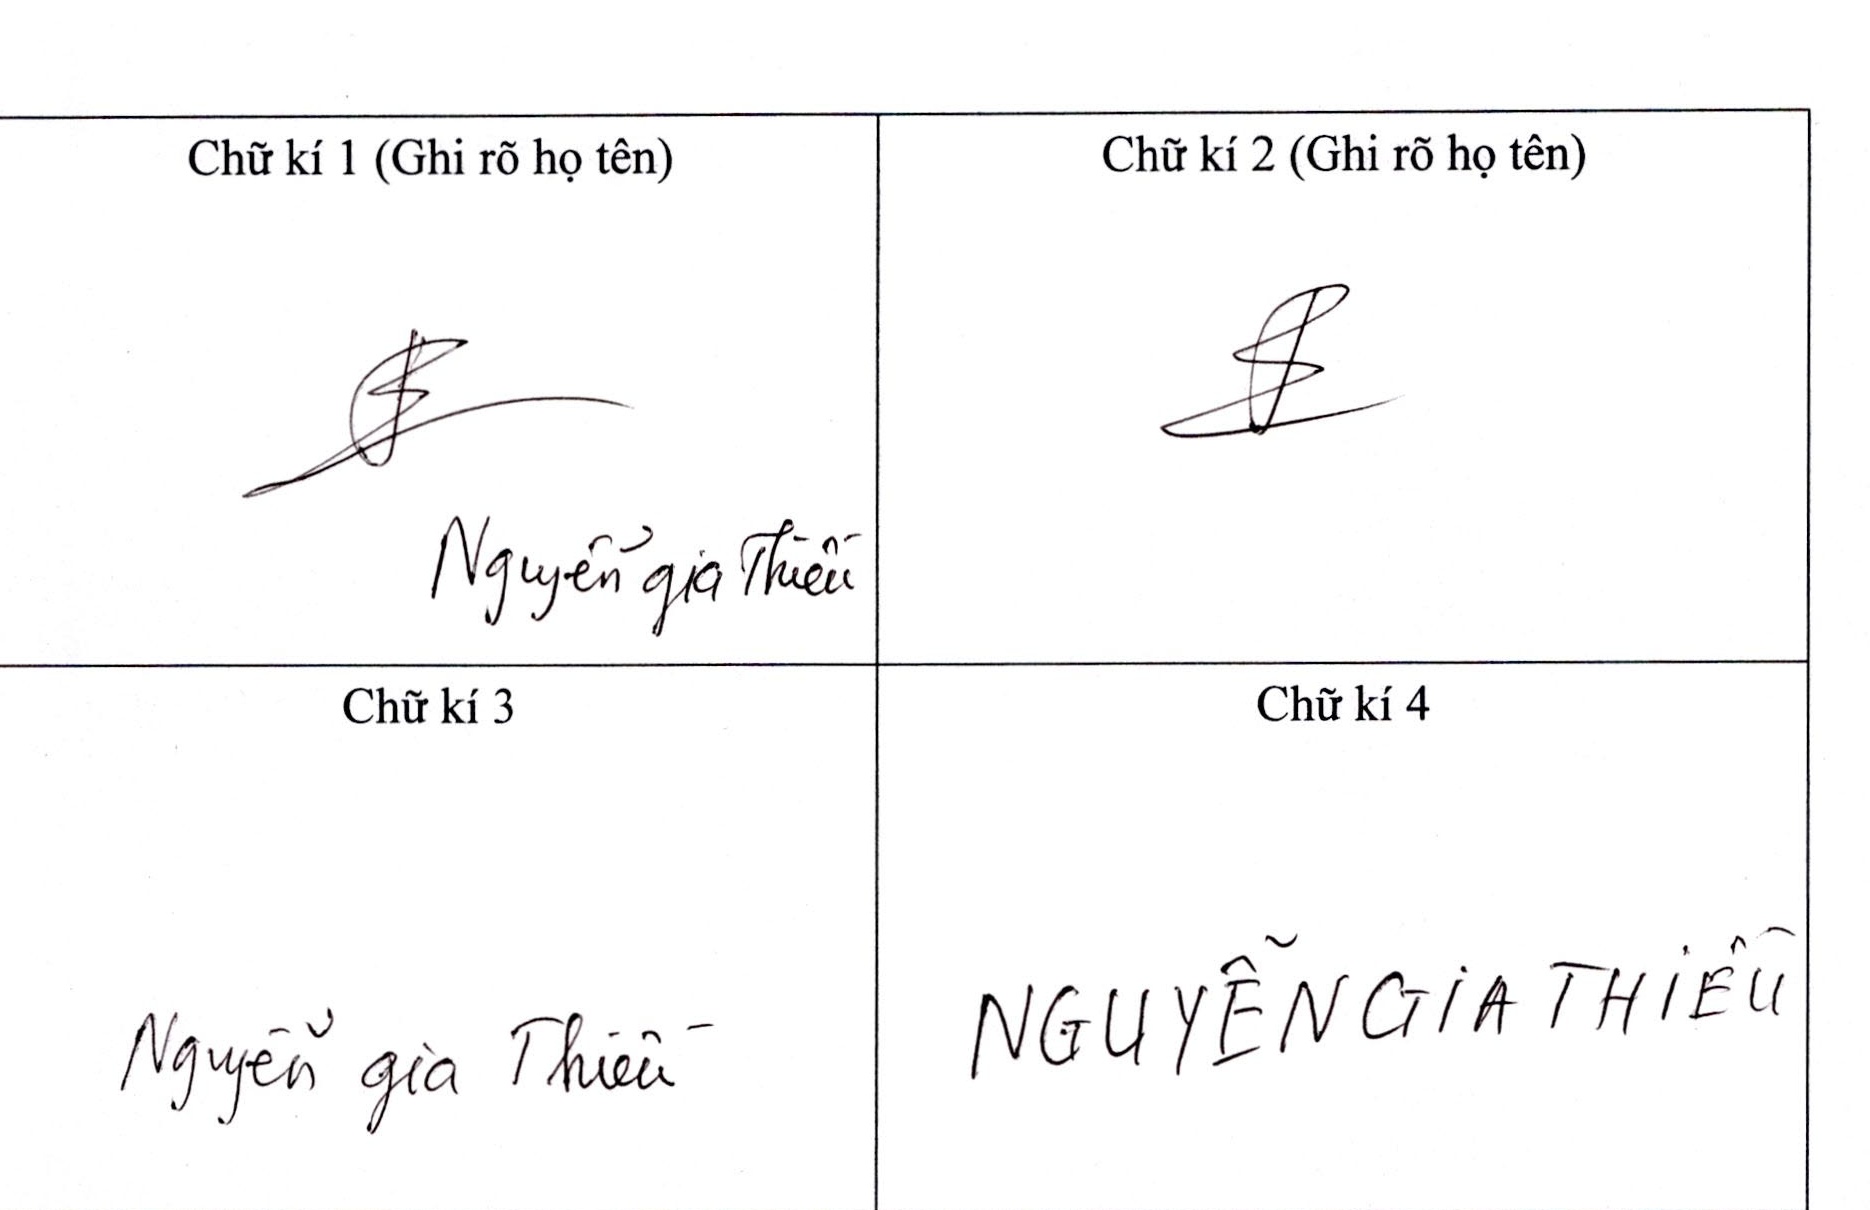 Chữ kí 1 (Ghi rõ họ tên)
Chữ kí 2 (Ghi rõ họ tên)
Nguyễn gia Thiều
Chữ kí 3
Chữ kí 4
Nguyễn gia Thiều
NGUYỄN GIA THIỀU